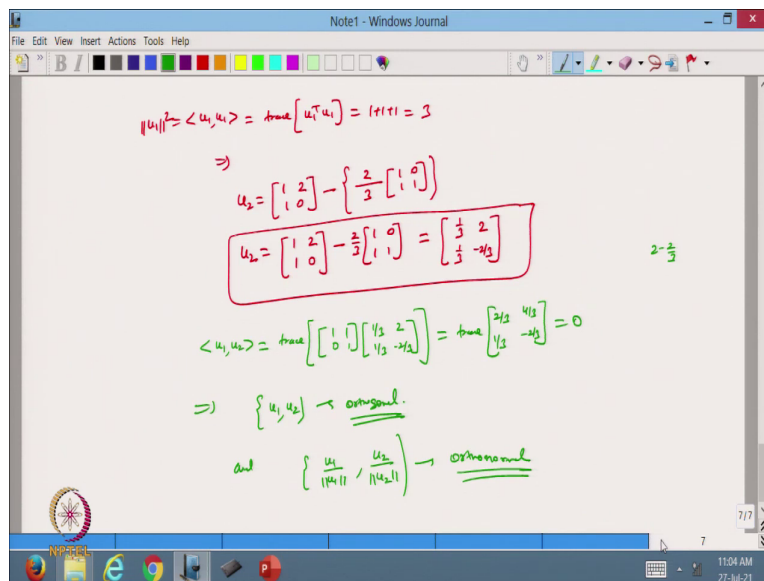 Note1 - Windows Journal
File Edit View Insert Actions Tools Help
B I
||u₁||² = <u₁,u₁> = trace[u₁ᵀ u₁] = 1+1+1 = 3
⇒
u₂ = [1 2; 1 0] - {2/3 [1 0; 1 1]}
u₂ = [1 2; 1 0] - 2/3 [1 0; 1 1] = [1/3 2; 1/3 -2/3]
2-2/3
<u₁,u₂> = trace[[1 1; 0 1] [1/3 2; 1/3 -2/3]] = trace[2/3 4/3; 1/3 -2/3] = 0
⇒ {u₁,u₂} → orthogonal.
and {u₁/||u₁||, u₂/||u₂||} → orthonormal
NPTEL
7/7
7
11:04 AM
27-Jul-21